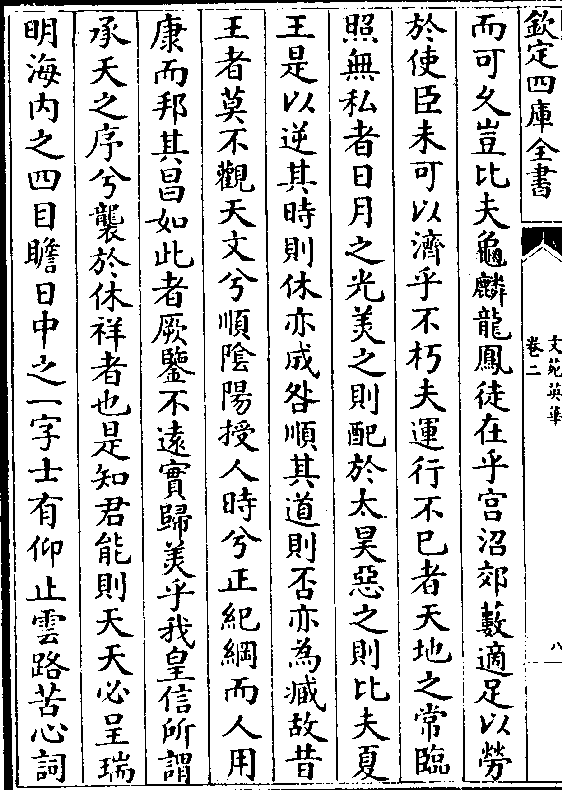 欽定四庫全書
文苑英華
卷二
八
而可久豈比夫龜麟龍鳳徒在乎宫沼郊藪適足以勞
於使臣未可以濟乎不朽夫運行不已者天地之常臨
照無私者日月之光美之則配於太昊惡之則比夫夏
王是以逆其時則休亦成咎順其道則否亦為臧故昔
王者莫不觀天文兮順陰陽授人時兮正紀綱而人用
康而邦其昌如此者厥鑒不遠實歸美乎我皇信所謂
承天之序兮襲於休祥者也是知君能則天天必呈瑞
明海内之四目瞻日中之一字士有仰止雲路苦心詞